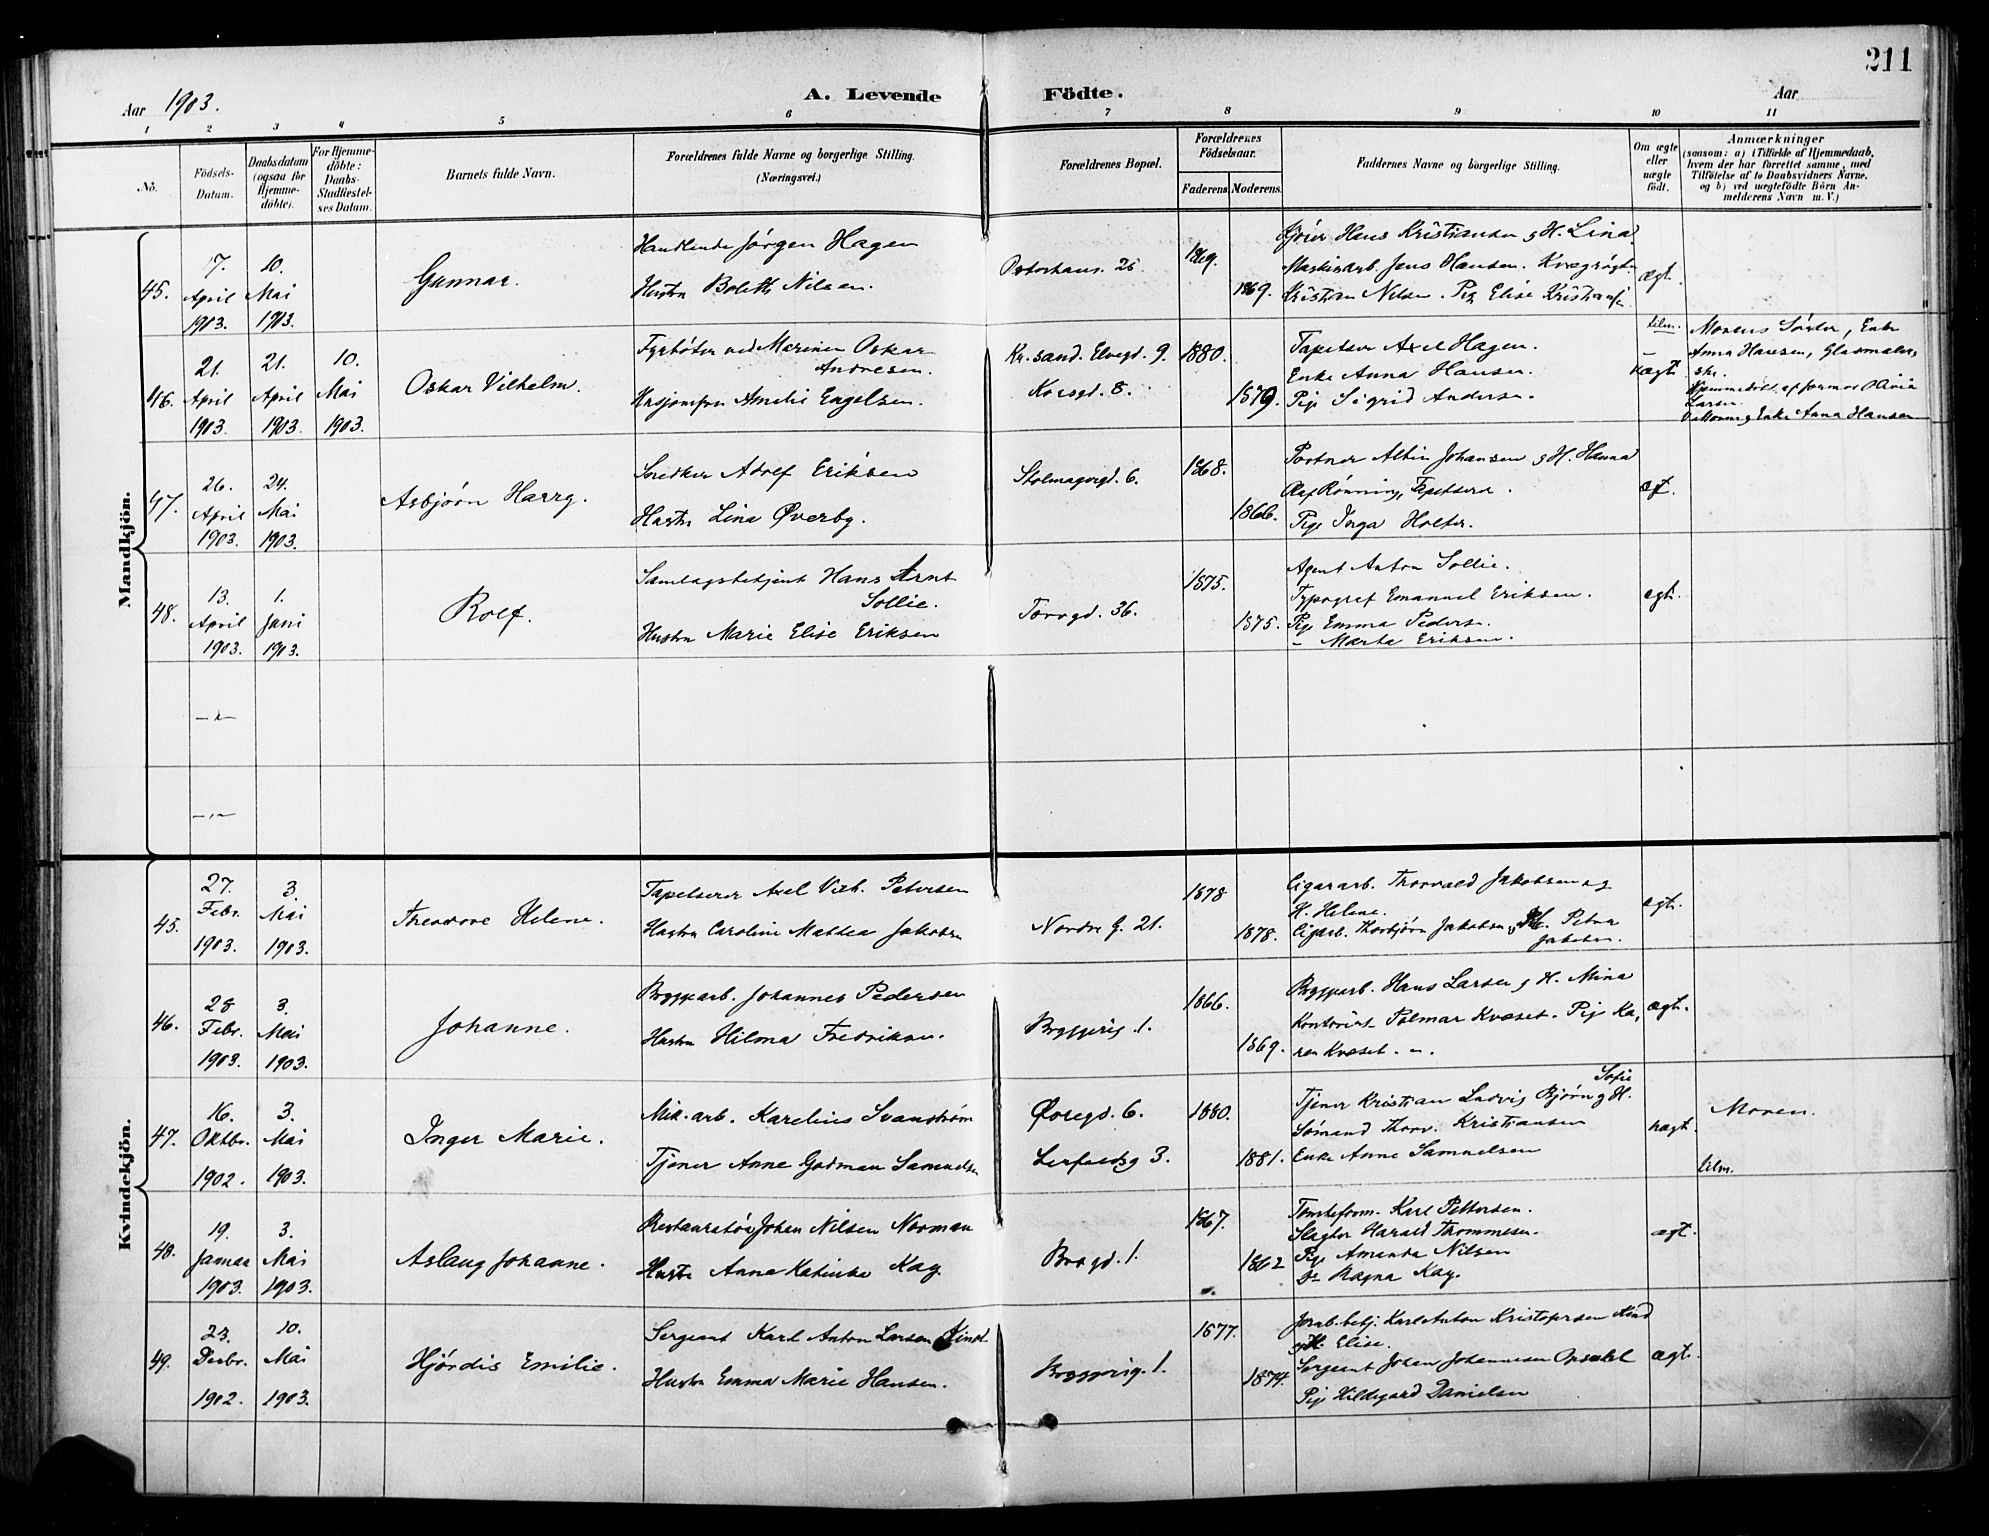 211
Aar 1903.
A. Levende Födte.
Aar
1 2 3 4 5 6 7 8 9 10 11
No.
Födsels-Datum.
Daabsdatum (ogsaa for Hjemme-döbte).
For Hjemme-döbte: Daabs-Stadfæstel-ses Datum.
Barnets fulde Navn.
Forældrenes fulde Navne og borgerlige Stilling.
(Næringsvei.)
Forældrenes Bopæl.
Forældrenes Födselsaar.
Faderens. Moderens.
Faddernes Navne og borgerlige Stilling.
Om ægte eller uægte födt.
Anmærkninger
(saasom: a) i Tilfælde af Hjemmedaab,
hvem der har forrettet samme, med
Tilföielse af to Daabsvidners Navne,
og b) ved uægtefödte Börn An-
melderens Navn m. V.)
Mandkjön.
45.
17. April 1903.
10. Mai 1903.
Gunnar.
Handlende Jørgen Hagen
Hustru Boleth Nilsen.
1869.
1869.
Hans Kristiansen og H. Lina
Maskinarb. Jens Hansen.
Kristian Nilsen. Pige Elise
ægt.
46.
21. April 1903.
21. April 1903.
10. Mai 1903.
Oskar Vilhelm.
Fyrbøter ved Marinen Oskar
Andresen.
Amelie Engelsen.
Kr.sand. Elvegd. 9.
Korsgd. 8.
1880.
1879.
Tapetserer Axel Hagen.
Enke Anna Hansen.
Pige Sigrid Andersen.
uægt.
Morens Søster, Enke
Anna Hansen,
Hjemmedøbt af jormor Olivia
Larsen
Enke Anna Hansen
47.
26. April 1903.
24. Mai 1903.
Asbjørn Harry.
Snedker Adolf Eriksen
Hustru Lina Øverby.
6.
1868.
1866.
Portner Albin Johansen og H. Hanna
Rønning, Tapetserer.
Pige Inga Holter.
48.
13. April 1903.
1. Juni 1903.
Rolf.
Samlagsbetjent Hans Arnt
Sollie.
Hustru Marie Elise Eriksen
Torvgd. 36.
1875.
1875.
Agent Anton Sollie.
Typograf Emanuel Eriksen.
Pige Emma Pedersen
- Marta Eriksen.
ægt.
Kvindekjön.
45.
27. Febr. 1903.
3. Mai 1903.
Theodore Helene.
Tapetserer Axel Vilh. Petersen
Hustru Caroline Mathea Jakobsen
Nordre g. 21.
1878
1878.
Cigararb. Thorvald Jakobsen og
H. Helene.
Thorbjørn Jakobsen, Petra
Jakobsen.
ægt.
46.
28 Febr. 1903.
3. Mai 1903.
Johanne.
Bryggearb. Johannes Pedersen
Hustru Hilma Fredriksen.
Bryggerig. 1.
1866.
1869.
Bryggearb. Hans Larsen og H. Mina
Kontorist Kvæset. Pige Ka,
ren Kvæset.
ægt.
47.
16. Oktbr. 1902.
3. Mai 1903.
Inger Marie.
Mek. arb. Karelius Svanstrøm
Tjener Anne Gudman Samuelsen
6.
3.
1880.
1881.
Tjener Kristian Ludvig Bjørn og H. Sofie
Sømand Thorv. Kristiansen
Enke Anne Samuelsen
uægt.
Moren.
48.
19. Januar 1903.
3. Mai 1903.
Aslaug Johanne.
Restauratør Johan Nilsen Norman
Hustru Anna Katinka Kay
1.
1867.
1862
Tomteform. Karl Pettersen.
Slagter Harald Thommesen.
Pige Amanda Nilsen
Do Ragna Kay.
ægt.
49.
23. Decbr. 1902.
10. Mai 1903.
Hjørdis Emilie.
Sergeant Karl Anton Larsen Kind
Hustru Emma Marie Hansen.
Bryggerig. 1.
1877.
1874.
Karl Anton Kristofersen Kind
og H. Elise.
Sergeant Johan Johannesen Opsahl
Pige Hildegard Danielsen
ægt.